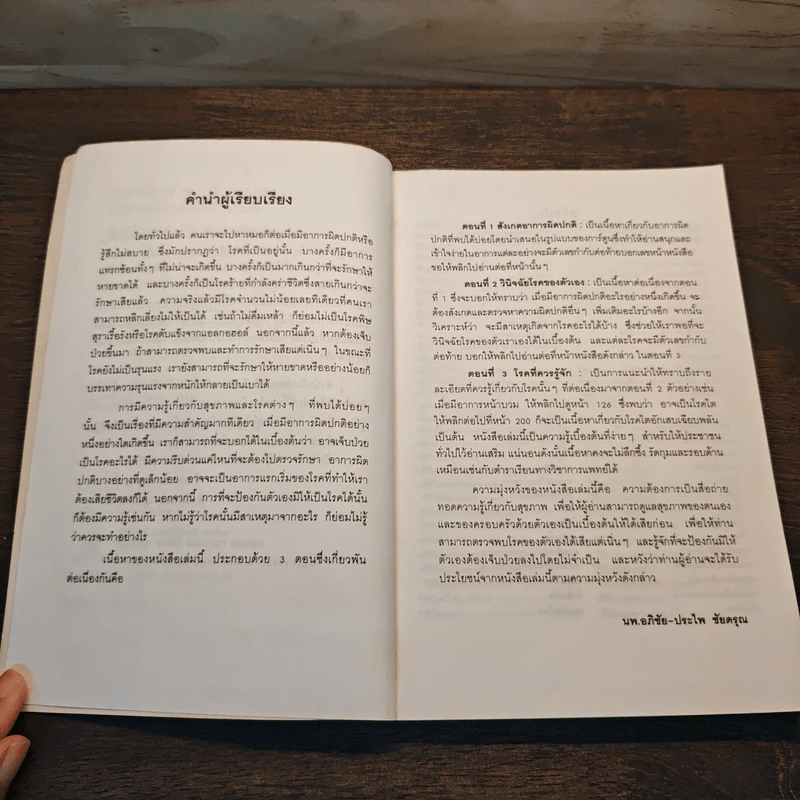 คำนำผู้เรียบเรียง
โดยทั่วไปแล้ว คนเราจะไปหาหมอก็ต่อเมื่อมีอาการผิดปกติหรือ
รู้สึกไม่สบาย ซึ่งมักปรากฏว่า โรคที่เป็นอยู่นั้น บางครั้งก็มีอาการ
แทรกซ้อนทั้งๆ ที่ไม่น่าจะเกิดขึ้น บางครั้งก็เป็นมากเกินกว่าที่จะรักษาให้
หายขาดได้ และบางครั้งก็เป็นโรคร้ายที่กำลังคร่าชีวิตซึ่งสายเกินกว่าจะ
รักษาเสียแล้ว ความจริงแล้วมีโรคจำนวนไม่น้อยเลยทีเดียวที่คนเรา
สามารถหลีกเลี่ยงไม่ให้เป็นได้ เช่นถ้าไม่ดื่มเหล้า ก็ย่อมไม่เป็นโรคพิษ
สุราเรื้อรังหรือโรคตับแข็งจากแอลกอฮอล์ นอกจากนี้แล้ว หากต้องเจ็บ
ป่วยขึ้นมา ถ้าสามารถตรวจพบและทำการรักษาเสียแต่เนิ่นๆ ในขณะที่
โรคยังไม่เป็นรุนแรง เราย่อมสามารถที่จะรักษาให้หายขาดหรืออย่างน้อยก็
บรรเทาความรุนแรงจากหนักให้กลายเป็นเบาได้
การมีความรู้เกี่ยวกับสุขภาพและโรคต่างๆ ที่พบได้บ่อยๆ
นั้น จึงเป็นเรื่องที่มีความสำคัญมากทีเดียว เมื่อมีอาการผิดปกติอย่าง
หนึ่งอย่างใดเกิดขึ้น เราก็สามารถที่จะบอกได้ในเบื้องต้นว่า อาจเจ็บป่วย
เป็นโรคอะไรได้ มีความรีบด่วนแค่ไหนที่จะต้องไปตรวจรักษา อาการผิด
ปกติบางอย่างที่ดูเล็กน้อย อาจจะเป็นอาการแรกเริ่มของโรคที่ทำให้เรา
ต้องเสียชีวิตลงก็ได้ นอกจากนี้ การที่จะป้องกันตัวเองมิให้เป็นโรคได้นั้น
ก็ต้องมีความรู้เช่นกัน หากไม่รู้ว่าโรคนั้นมีสาเหตุมาจากอะไร ก็ย่อมไม่รู้
ว่าควรจะทำอย่างไร
เนื้อหาของหนังสือเล่มนี้ ประกอบด้วย 3 ตอนซึ่งเกี่ยวพัน
ต่อเนื่องกันคือ
ตอนที่ 1 สังเกตอาการผิดปกติ : เป็นเนื้อหาเกี่ยวกับอาการผิด
ปกติที่พบได้บ่อยโดยนำเสนอในรูปแบบของการ์ตูนซึ่งทำให้อ่านสนุกและ
เข้าใจง่ายในอาการแต่ละอย่างจะมีตัวเลขกำกับต่อท้ายบอกเลขหน้าหนังสือ
ขอให้พลิกไปอ่านต่อที่หน้านั้นๆ
ตอนที่ 2 วินิจฉัยโรคของตัวเอง : เป็นเนื้อหาต่อเนื่องจากตอน
ที่ 1 ซึ่งจะบอกให้ทราบว่า เมื่อมีอาการผิดปกติอะไรอย่างหนึ่งเกิดขึ้น จะ
ต้องสังเกตและตรวจหาความผิดปกติอื่นๆ เพิ่มเติมอะไรบ้างอีก จากนั้น
วิเคราะห์ว่า จะมีสาเหตุเกิดจากโรคอะไรได้บ้าง ซึ่งช่วยให้เราพอที่จะ
วินิจฉัยโรคของตัวเราเองได้ในเบื้องต้น และแต่ละโรคก็จะมีตัวเลขกำกับ
ต่อท้าย บอกให้พลิกไปอ่านต่อที่หน้าหนังสือดังกล่าว ในตอนที่ 3
ตอนที่ 3 โรคที่ควรรู้จัก : เป็นการแนะนำให้ทราบถึงราย
ละเอียดที่ควรรู้เกี่ยวกับโรคนั้นๆ ที่ต่อเนื่องมาจากตอนที่ 2 ตัวอย่างเช่น
เมื่อมีอาการหน้าบวม ให้พลิกไปดูหน้า 126 ซึ่งพบว่า อาจเป็นโรคไต
ให้พลิกต่อไปที่หน้า 200 ก็จะเป็นเนื้อหาเกี่ยวกับโรคไตอักเสบเฉียบพลัน
เป็นต้น หนังสือเล่มนี้เป็นความรู้เบื้องต้นที่ง่ายๆ สำหรับให้ประชาชน
ทั่วไปไว้อ่านเสริม แน่นอนดังนั้นเนื้อหาคงจะไม่ลึกซึ้ง รัดกุมและรอบด้าน
เหมือนเช่นกับตำราเรียนทางวิชาการแพทย์ได้
ความมุ่งหวังของหนังสือเล่มนี้คือ ความต้องการเป็นสื่อถ่าย
ทอดความรู้เกี่ยวกับสุขภาพ เพื่อให้ผู้อ่านสามารถดูแลสุขภาพของตนเอง
และของครอบครัวด้วยตัวเองเป็นเบื้องต้นให้ได้เสียก่อน เพื่อให้ท่าน
สามารถตรวจพบโรคของตัวเองได้เสียแต่เนิ่นๆ และรู้จักที่จะป้องกันมิให้
ตัวเองต้องเจ็บป่วยลงไปโดยไม่จำเป็น และหวังว่าท่านผู้อ่านจะได้รับ
ประโยชน์จากหนังสือเล่มนี้ตามความมุ่งหวังดังกล่าว
นพ.อภิชัย-ประไพ ชัยดรุณ